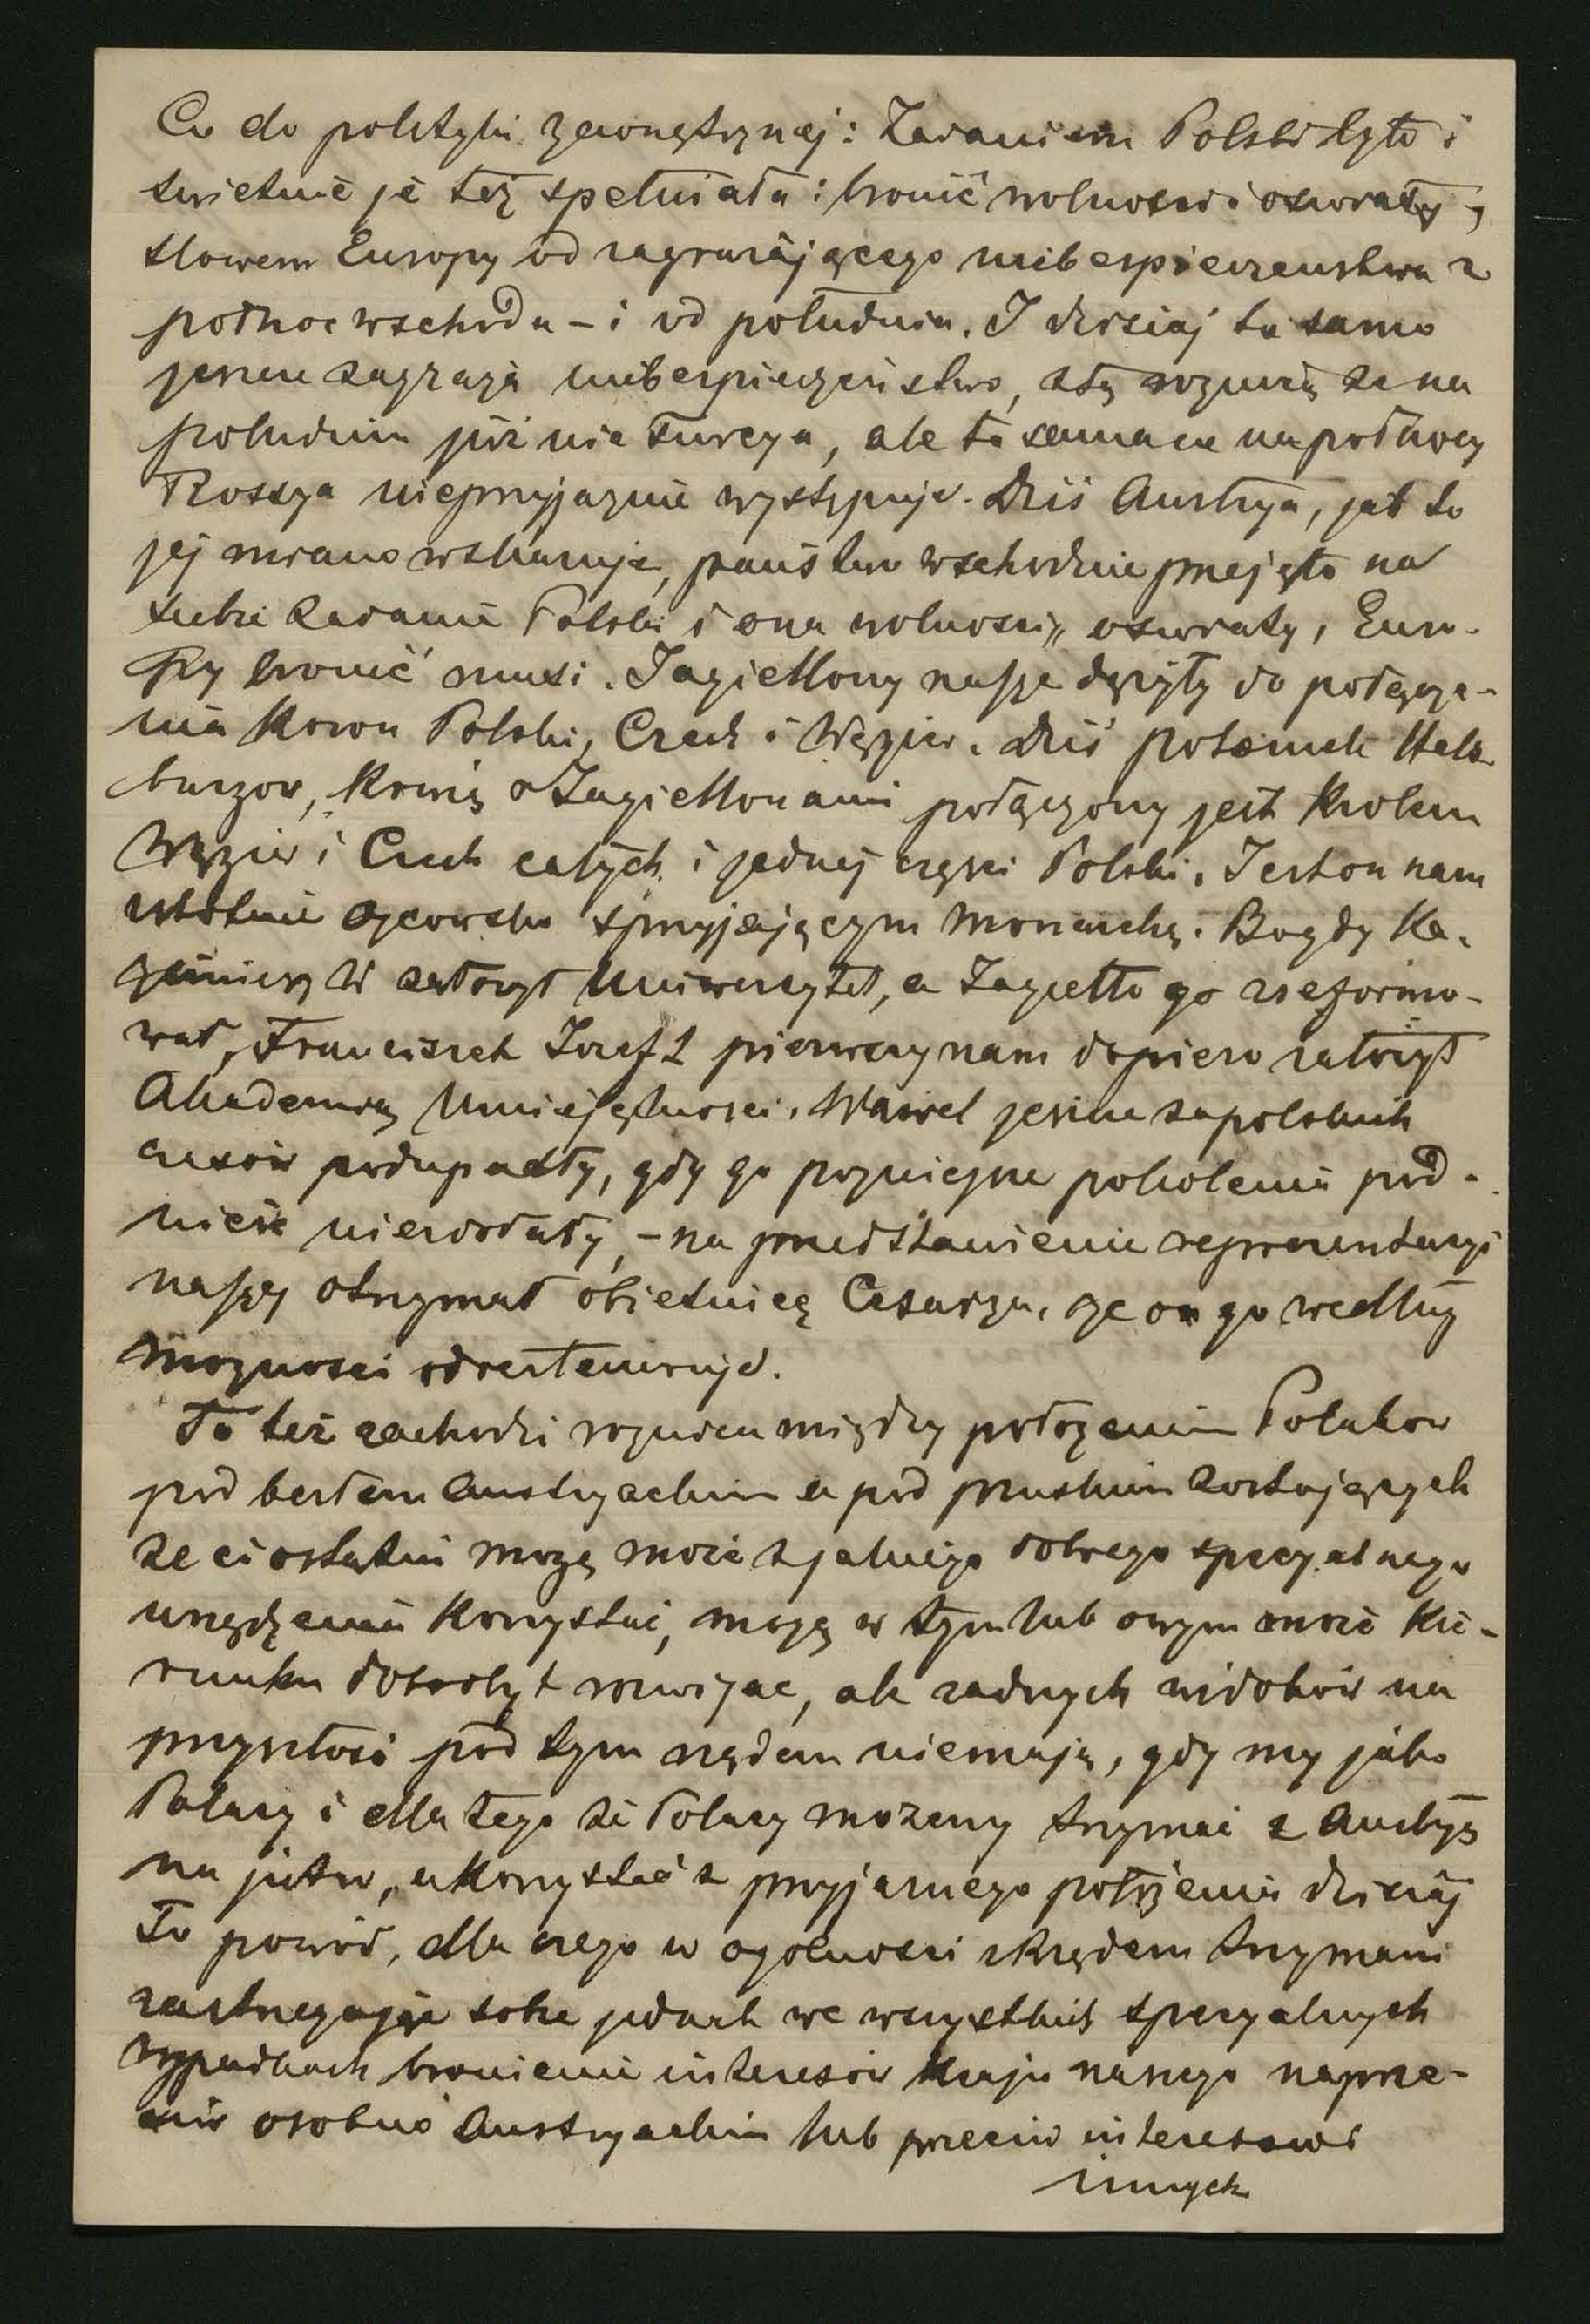 Co do polityki zewnętrznej: Zadaniem Polski było i
świetnie je też spełniała: bronić wolności i oświaty,
słowem Europy od zagrażającego niebespieczeństwa z
północ wschodu – i od południa. I dzisiaj to samo
jeszcze zagraża niebespieczeństwo, z tą roznicą ze na
południu już nie Turcya, ale ta sama co na północy
Rossya nieprzyjaznie występuje. Dziś Austrya, jak to
jej miano wskazuje, państwo wschodnie przejęło na
siebie zadanie Polski i ona wolności, oswiaty, Euro-
py bronić musi. Jagiellony nasze dążyły do połącze-
nia koron Polski, Czech i Węgier. Dziś potomek Habs-
burgow, krwią z Jagiellonami połączony jest krolem
Węgier i Czech całych i jednej częsci Polski. Jest on nam
istotnie ojcowsko sprzyjającym monarchą. Bo gdy Ka-
zimierz W założył Uniwersytet, a Jagiełło go zreformo-
wał, Franciszek Jozef I pierwszy nam dopiero założył
Akademią Umiejętnosci. Wawel jeszcze za polskich
czasów podupadły, gdy go pozniejsze pokolenia pod-
nieść niezdołały, – na przedstawienie reprezentacyi
naszej otrzymał obietnicę Cesarza, że on go według
moznosci odrestauruje.
To też zachodzi roznica między położeniem Polakow
pod berłem austryackim a pod pruskim zostających
ze ci ostatni mogą może z jakiego dobrego specyalnego
urządzenia korzystać, mogą w tym lub owym może kie-
runku dobrobyt rozwijac, ale zadnych widoków na
przyszłość pod tym rządem niemają, gdy my jako
Polacy i dla tego że Polacy możemy trzymać z Austryą
na jutro, a korzystać z przyjaznego położenia dzisiaj
To powód, dla czego w ogolnosci z Rządem trzymam
zastrzegając sobie jednak we wszystkich specyalnych
wypadkach bronienie interesów kraju naszego naprze-
ciw osobno Austryackim lub przeciw interesowi
innych